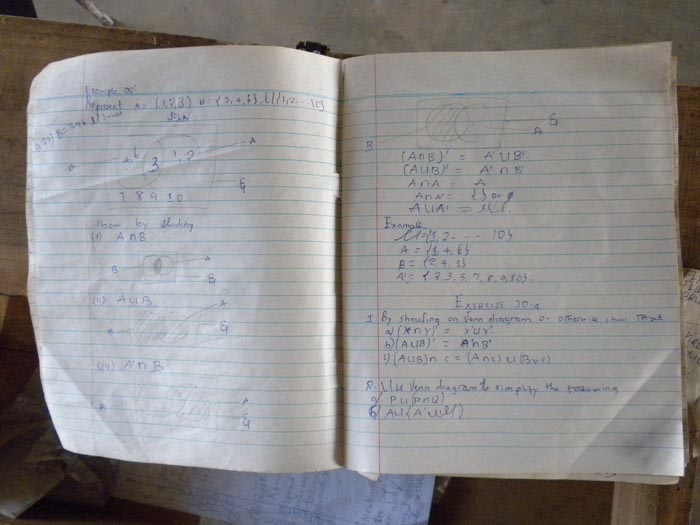 Example 001
Represent A = {1,2,3} B = {3,4,6}
A
B
4,6
3
1,2
7 8 9 10
Show by shading
(i) A∩B
B
A
(ii) A∪B
A
B
(iii) A'∩B
B
A
A
B
(A∩B)' = A'∪B'
(A∪B)' = A'∩B'
A∩A = A
A∩A' = { } or ∅
A∪A' =
Example
= {1, 2 .... 10}
A = {1, 4, 6}
B = {2, 4, 1}
A' = { 2 3, 5, 7, 8, 9, 10}.
EXERCISE 30.4
1. By shading on Venn diagram or otherwise show that
a) (X∩Y)' = X'∪Y'
b) (A∪B)' = A'∩B'
c) (A∪B)∩C = (A∩C)∪(B∩C)
2. Use Venn diagram to simplify the following
a) P∪(P∩Q)
b)